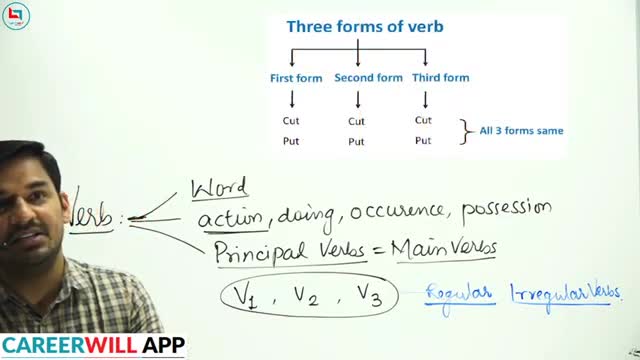 Three forms of verb
First form Second form Third form
Cut Cut Cut
Put Put Put
All 3 forms same
Word
Verb :
action, doing, occurence, possession
Principal Verbs = Main Verbs
V1 , V2 , V3
Regular Irregular Verbs.
CAREERWILL APP